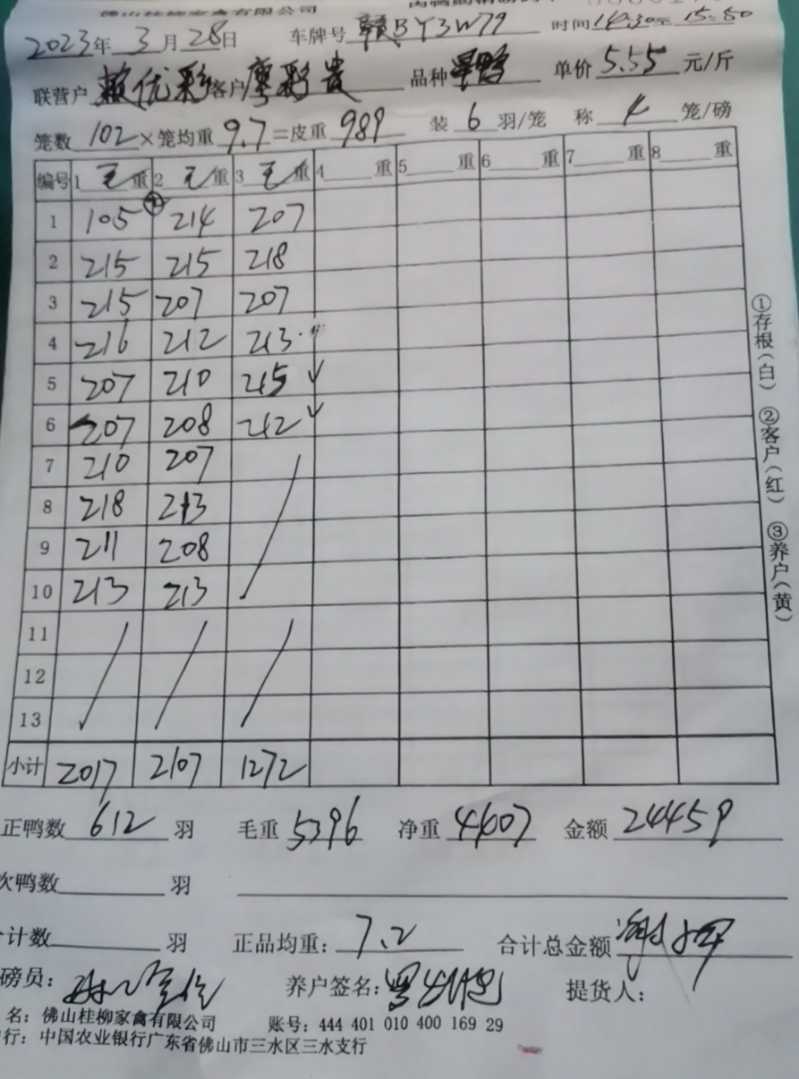 佛山桂柳家禽有限公司
2023年 3月 28日 车牌号 赣BY3W79 时间 14:30 至 15:50
联营户 赖优彩 客户 廖彩贵 品种 单价 5.55 元/斤
笼数 102 × 笼均重 9.7 = 皮重 989 装 6 羽/笼 称 4 笼/磅
编号 1 毛 重 2 毛 重 3 毛 重 4 重 5 重 6 重 7 重 8 重
1 105 ④ 214 207
2 215 215 218
3 215 207 207
4 216 212 213
5 207 210 215
6 207 208 212
7 210 207
8 218 213
9 211 208
10 213 213
11
12
13
小计 2017 2107 1272
正鸭数 612 羽 毛重 5396 净重 4407 金额 24459
次鸭数 羽
计数 羽 正品均重: 7.2 合计总金额
磅员: 养户签名: 提货人:
名: 佛山桂柳家禽有限公司 账号: 444 401 010 400 169 29
行: 中国农业银行广东省佛山市三水区三水支行
①存根(白) ②客户(红) ③养户(黄)